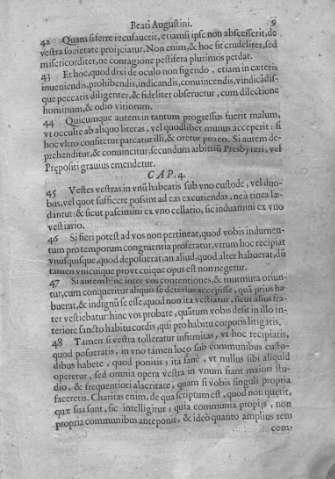 Beati Augustini. 9
42 Quam si ferre recusauerit, etiamsi ipse non abscesserit, de
vestra societate proijciatur. Non enim, & hoc fit crudeliter, sed
misericorditer, ne contagione pestifera plurimos perdat.
43 Et hoc, quod dixi de oculo non figendo, etiam in cæteris
inueniendis, prohibendis, indicandis, conuincendis, vindicādis-
que peccatis diligenter, & fideliter obseruetur, cum dilectione
hominum, & odio vitiorum.
44 Quicunque autem in tantum progressus fuerit malum,
vt occulte ab aliquo literas, vel quodlibet munus acceperit: si
hoc vltro confitetur parcatur illi, & oretur pro eo. Si autem de-
prehenditur, & conuincitur, secundum arbitriū Presbyteri, vel
Præpositi grauius emendetur.
CAP. 4.
45 Vestes vestras in vnū habeatis sub vno custode, vel duo-
bus, vel quot sufficere possint ad eas excutiendas, ne a tinea læ-
dantur: & sicut pascimini ex vno cellario, sic induamini ex vno
vestiario.
46 Si fieri potest ad vos non pertineat, quod vobis indumen-
tum pro temporum congruentia proferatur, vtrum hoc recipiat
vnusquisque, quod deposuerat, an aliud, quod alter habuerat, dū
tamen vnicuique prout cuique opus est non negetur.
47 Si autem hinc inter vos contentiones, & murmura oriun-
tur, cum conqueritur aliquis se deterius accepisse, quā prius ha-
buerat, & indignū se esse, quod non ita vestiatur, sicut alius fra-
ter vestiebatur hinc vos probate, quātum vobis desit in illo in-
teriore sancto habitu cordis, qui pro habitu corporis litigatis.
48 Tamen si vestra tolleratur infirmitas, vt hoc recipiatis,
quod posueratis, in vno tamen loco sub communibus custo-
dibus habete, quod ponitis: ita sanè, vt nullus sibi aliquid
operetur, sed omnia opera vestra in vnum fiant maiori stu-
dio, & frequentiori alacritate, quam si vobis singuli propria
faceretis. Charitas enim, de qua scriptum est, quod non quærit,
quæ sua sunt, sic intelligitur: quia communia proprijs, non
propria communibus anteponit, & ideo quanto amplius rem
com-